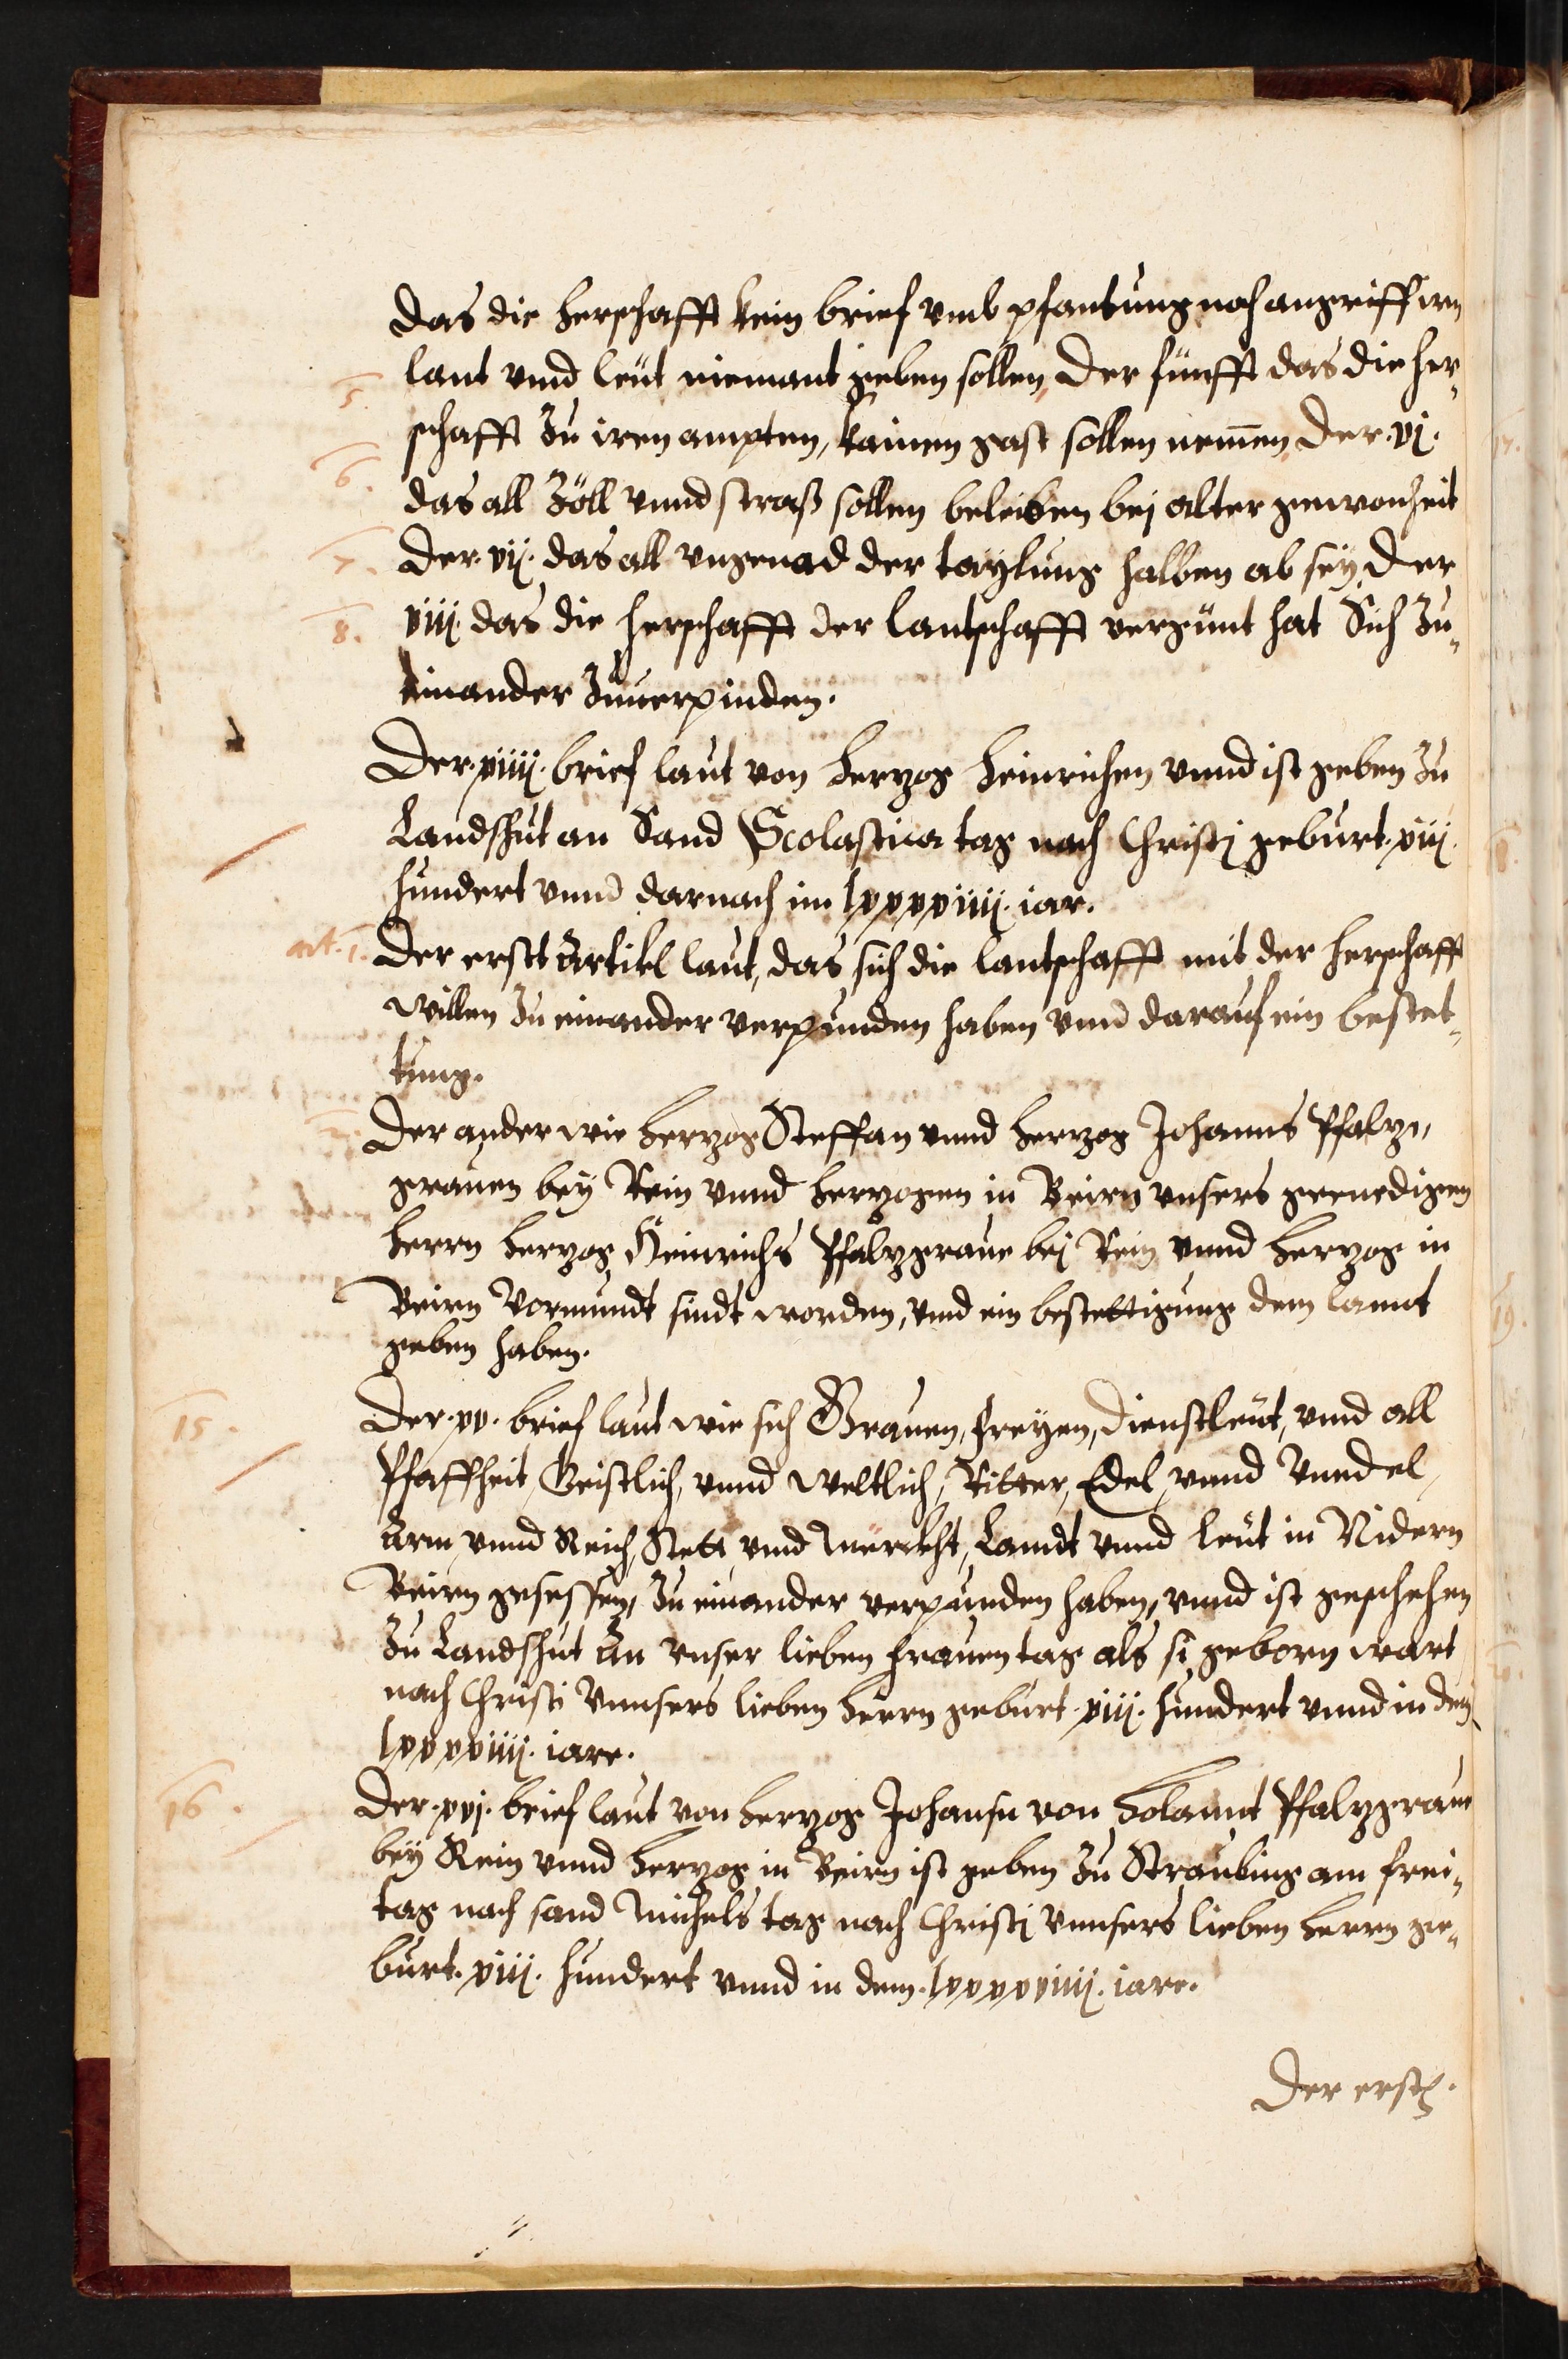 das die herschafft kein brief vmb pfantung noch angriff irn
5. lant vnnd leüt niemant geben sollen, Der fünfft das die her¬
schafft Zu iren ampten, kainen gast sollen nemen, Der .vj.
6. das all Zöll vnnd straß sollen beleiben bej alter gewonheit
7. Der .vij. das all vngenad der taÿlung halben ab seÿ, Der
8. viij. das die herschafft der lantschafft vergünt hat Sich Zu¬
einander Zuuerpinden.
Der .xiiij. brief laut von herzog Heinrichen vnnd ist geben Zu
Landshut an Sand Scolastica tag nach Christj geburt .xiij.
hundert vnnd darnach im lxxxxiiij. iar.
art. 1. Der erst Artikl laut, das sich die lantschafft mit der herschafft
willen Zu einander verpunden haben vnnd darauf ein bestet¬
tung.
2. Der ander wie herzog Steffan vnnd herzog Johanns Pfalz¬
grauen beÿ Rein vnnd herzogen in Beirn vnsers genedigen
herrn herzog Heinrichs Pfalzgraue bej Rein vnnd herzog in
Beirn Vormundt sindt worden, vnd ein bestettigung dem lannt
geben haben.
15. Der .xv. brief laut wie sich Grauen, freÿen, dienstleut, vnnd all
Pfaffheit, Geistlich, vnnd weltlich, Ritter, Edel, vnnd Vnedel,
Arm, vnnd Reich, Stett vnnd Merckht, Lanndt vnnd leüt in Nidern
Beirn gesessen, Zu einander verpunden haben, vnnd ist geschehen
Zu Landshut An vnser lieben frauen tag als si geborn wart
nach Christi Vnnsers lieben herrn geburt .xiij. hundert vnnd in dem
lxxxxiiij. iare.
16. Der .xvj. brief laut von herzog Johansn von holannt Pfalzgraue
beÿ Rein vnnd herzog in Beirn ist geben Zu Straubing am frei¬
tag nach sand Michels tag nach Christj Vnnsers lieben herrn ge¬
burt .xiij. hundert vnnd in dem .lxxxxviiij. iare.
Der erst.